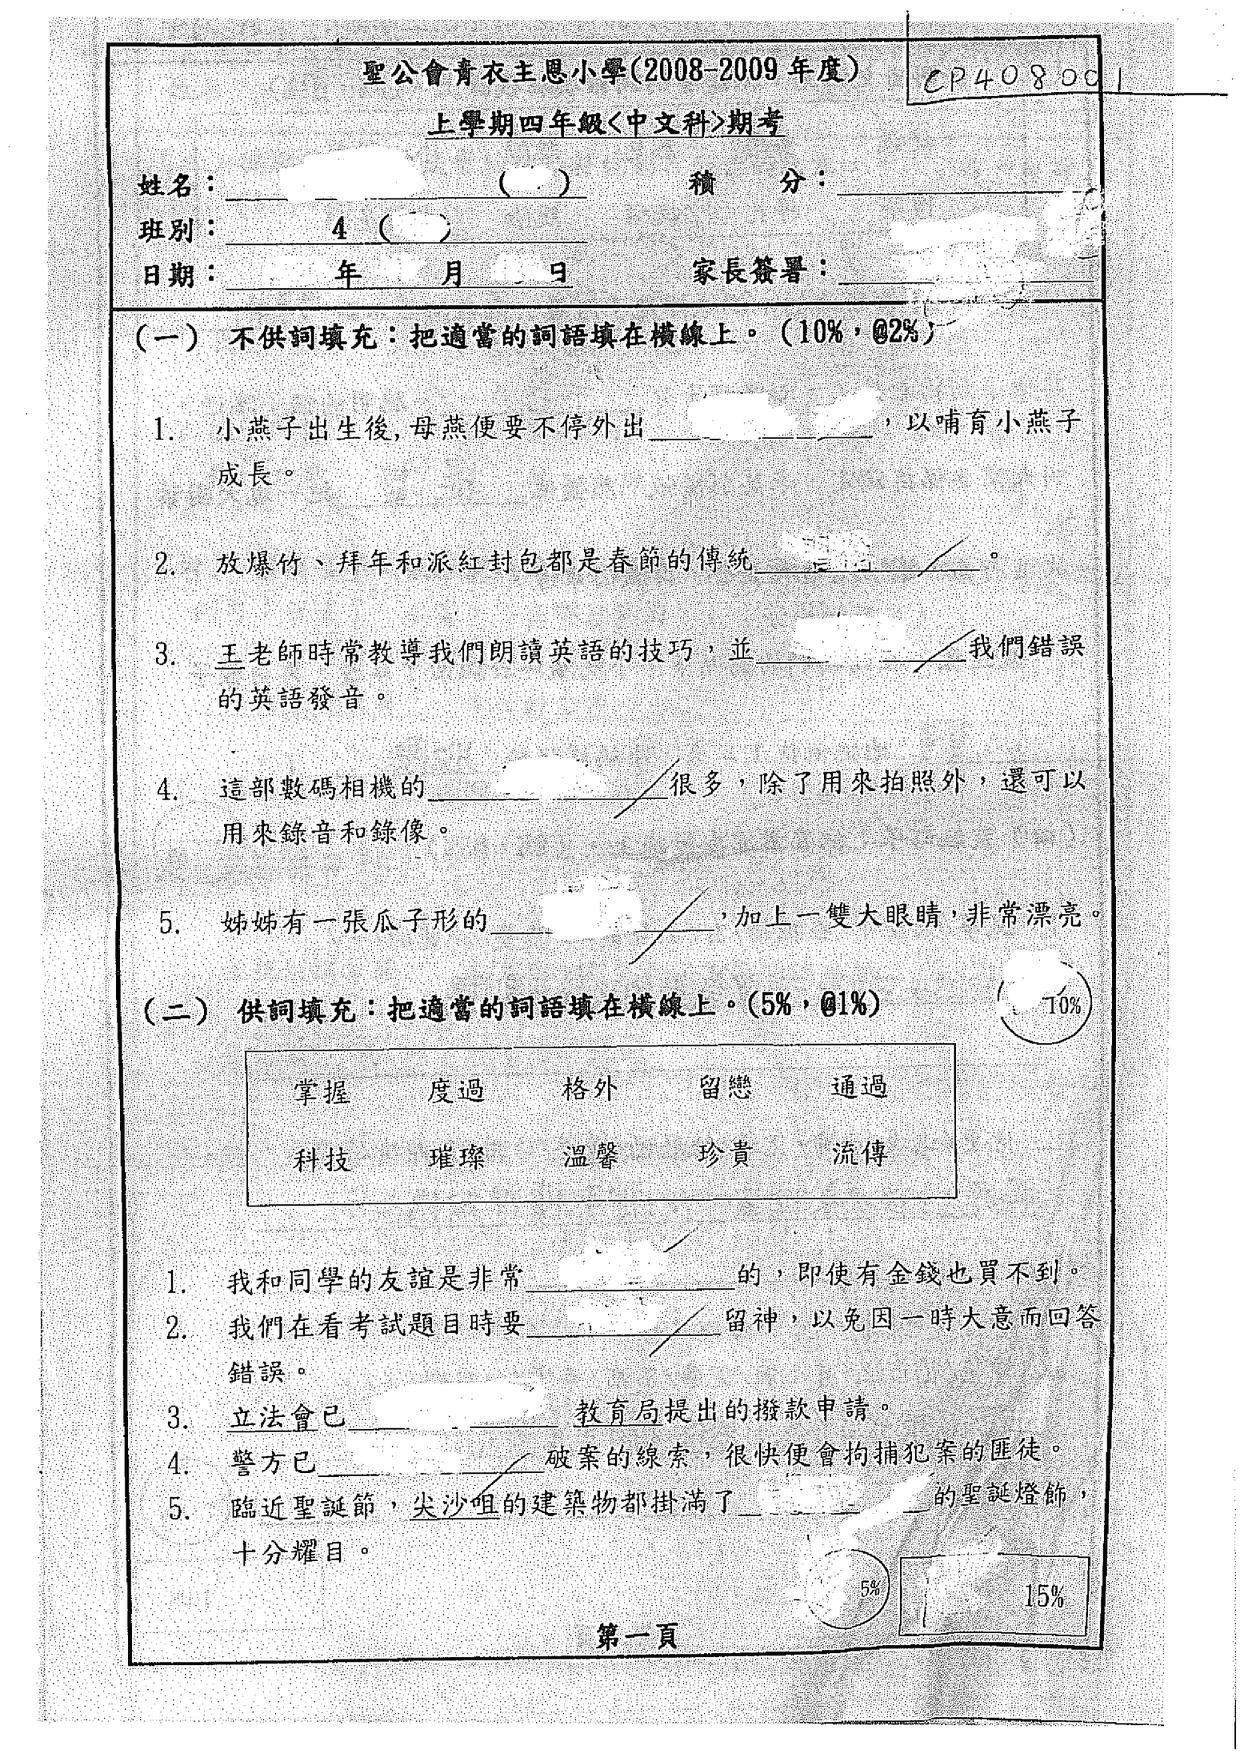 聖公會青衣主恩小學(2008-2009 年度)
CP408001
上學期四年級<中文科>期考
姓名： ( ) 積 分：
班別： 4 ( )
日期： 年 月 日 家長簽署：
(一) 不供詞填充：把適當的詞語填在橫線上。(10%，@2%)
1. 小燕子出生後,母燕便要不停外出 ，以哺育小燕子
成長。
2. 放爆竹、拜年和派紅封包都是春節的傳統 。
3. 王老師時常教導我們朗讀英語的技巧，並 我們錯誤
的英語發音。
4. 這部數碼相機的 很多，除了用來拍照外，還可以
用來錄音和錄像。
5. 姊姊有一張瓜子形的 ，加上一雙大眼睛，非常漂亮。
10%
(二) 供詞填充：把適當的詞語填在橫線上。(5%，@1%)
掌握 度過 格外 留戀 通過
科技 璀璨 溫馨 珍貴 流傳
1. 我和同學的友誼是非常 的，即使有金錢也買不到。
2. 我們在看考試題目時要 留神，以免因一時大意而回答
錯誤。
3. 立法會已 教育局提出的撥款申請。
4. 警方已 破案的線索，很快便會拘捕犯案的匪徒。
5. 臨近聖誕節，尖沙咀的建築物都掛滿了 的聖誕燈飾，
十分耀目。
5% 15%
第一頁